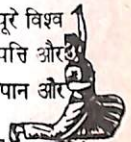 पूरे विश्व
पत्ति और
पान और